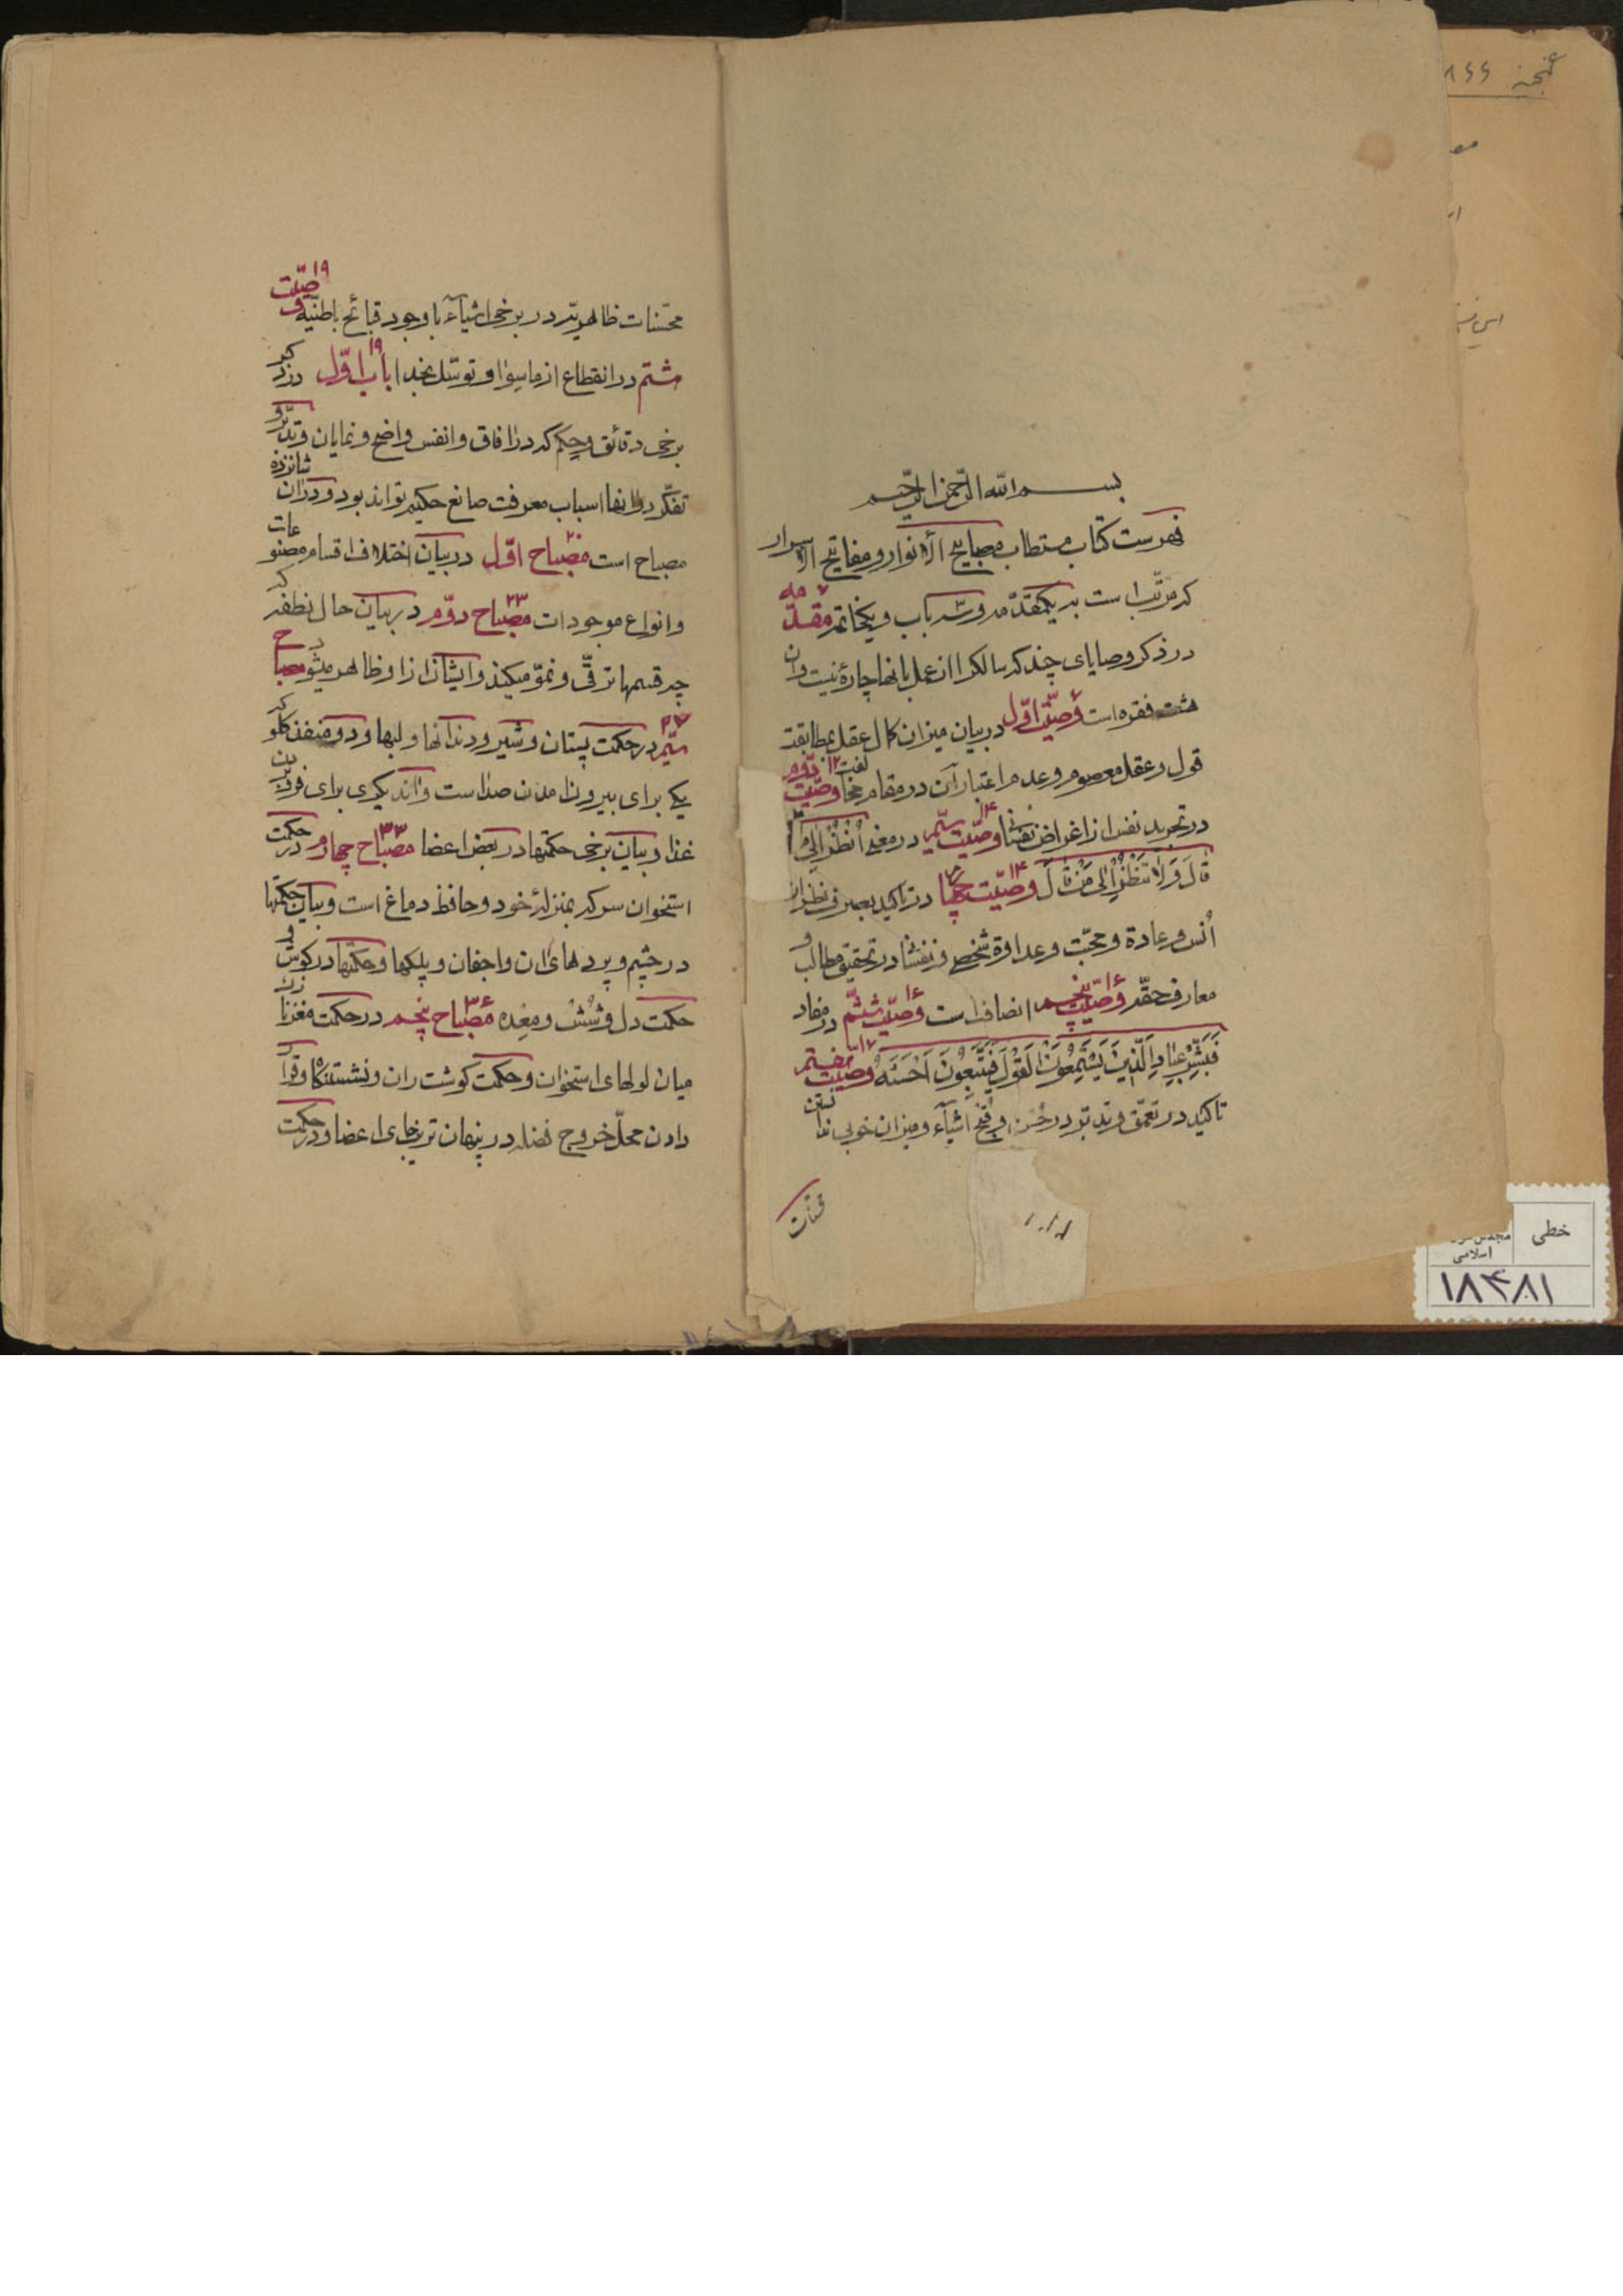 بسم الله الرحمن الرحیم
فهرست کتاب مستطاب مصابیح الانوار و مفاتیح الاسرار
که مرتب است به یکمقدمه و سه باب و یکخاتمه مقدمه ۷
در ذکر وصایای چند که سالک را از عمل بانها چارهٔ نیست و ان
هشت فقره است وصیّت اوّل ۷ در بیان میزان کمال عقل بمطابقت
قول و عقل معصوم و عدم اعتبار آن در مقام مخالفت وصیّت دوّم ۱۲
در تجرید نفس از اغراض نفسانی وصیّت سیّم ۱۴ در معنی اُنْظُرْ اِلیٰ مٰا
قٰالَ وَ لاٰ تَنْظُرْ اِلیٰ مَنْ قٰالَ وصیّت چهارم ۱۴ در تاکید بصرف نظر از
اُنس و عادة و محبّت و عداوة شخصی و نفسانی در تحقیق مطالب و
معارف حقّه وصیّت پنجم ۱۶ انصاف است وصیّت ششم ۱۶ در مفاد
فَبَشِّرْ عِبٰادِ اَلَّذینَ یَسْتَمِعُونَ الْقَوْلَ فَیَتَّبِعُونَ اَحْسَنَهُ وصیّت هفتم ۱۷
تاکید در تعمّق و تدبّر در حُسْن و قُبْح اشیآء و میزان خوبی ندانستن
محسّنات
محسّنات ظاهریّه در برخی اشیآء با وجود قبائح باطنیّه وصیّت ۱۹
هشتم در انقطاع از ماسوا و توسّل بخدا باب اوّل ۱۹ در ذکر
برخی دقائق و حِکَم که در آفاق و انفس واضح و نمایان و تدبّر و
تفکّر در انها اسباب معرفت صانع حکیم تواند بود و در ان شانزده
مصباح است مصباح اوّل ۲۰ در بیان اختلاف اقسام مصنوعات
و انواع موجودات مصباح دوّم ۲۳ در بیان حال نطفه که
چه قسمها ترقّی و نموّ میکند و ایشان از او ظاهر میشود مصباح
سیّم ۲۷ در حکمت پستان و شیر و دندانها و لبها و دو منفذ گلو که
یکی براى بیرون امدن صدا است و اند یگری برای فرو بردن
غذا و بیان برخی حکمتها در بعض اعضا مصباح چهارم ۳۳ در حکمت
استخوان سر که بمنزلهٔ خود و حافظ دماغ است و بیان حکمتها
در چشم و پرده های ان و اجفان و پلکها و حکمتها در گوش و
حکمت دل و شُشْ و معِده مصباح پنجم ۳۶ در حکمت مغزها در
میان لولهای استخوان و حکمت گوشت ران و نشستنگاه و قرار
دادن محلّ خروج فضله در پنهان ترین جای اعضا و در حکمت
خطی
اسلامی
۱۸۴۸۱